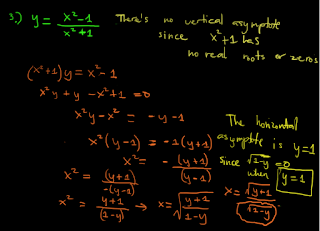 3.) y = x²-1 / x²+1
There's no vertical asymptote
since x²+1 has
no real roots or zeros
(x²+1)y = x²-1
x²y + y - x² + 1 = 0
x²y - x² = -y - 1
x²(y-1) = -1(y+1)
x² = - (y+1) / (y-1)
x² = (y+1) / -(y-1)
x² = y+1 / (1-y) → x = √(y+1 / 1-y)
x = √(y+1) / √(1-y)
The horizontal
asymptote is y=1
since √(1-y) = 0
when y=1